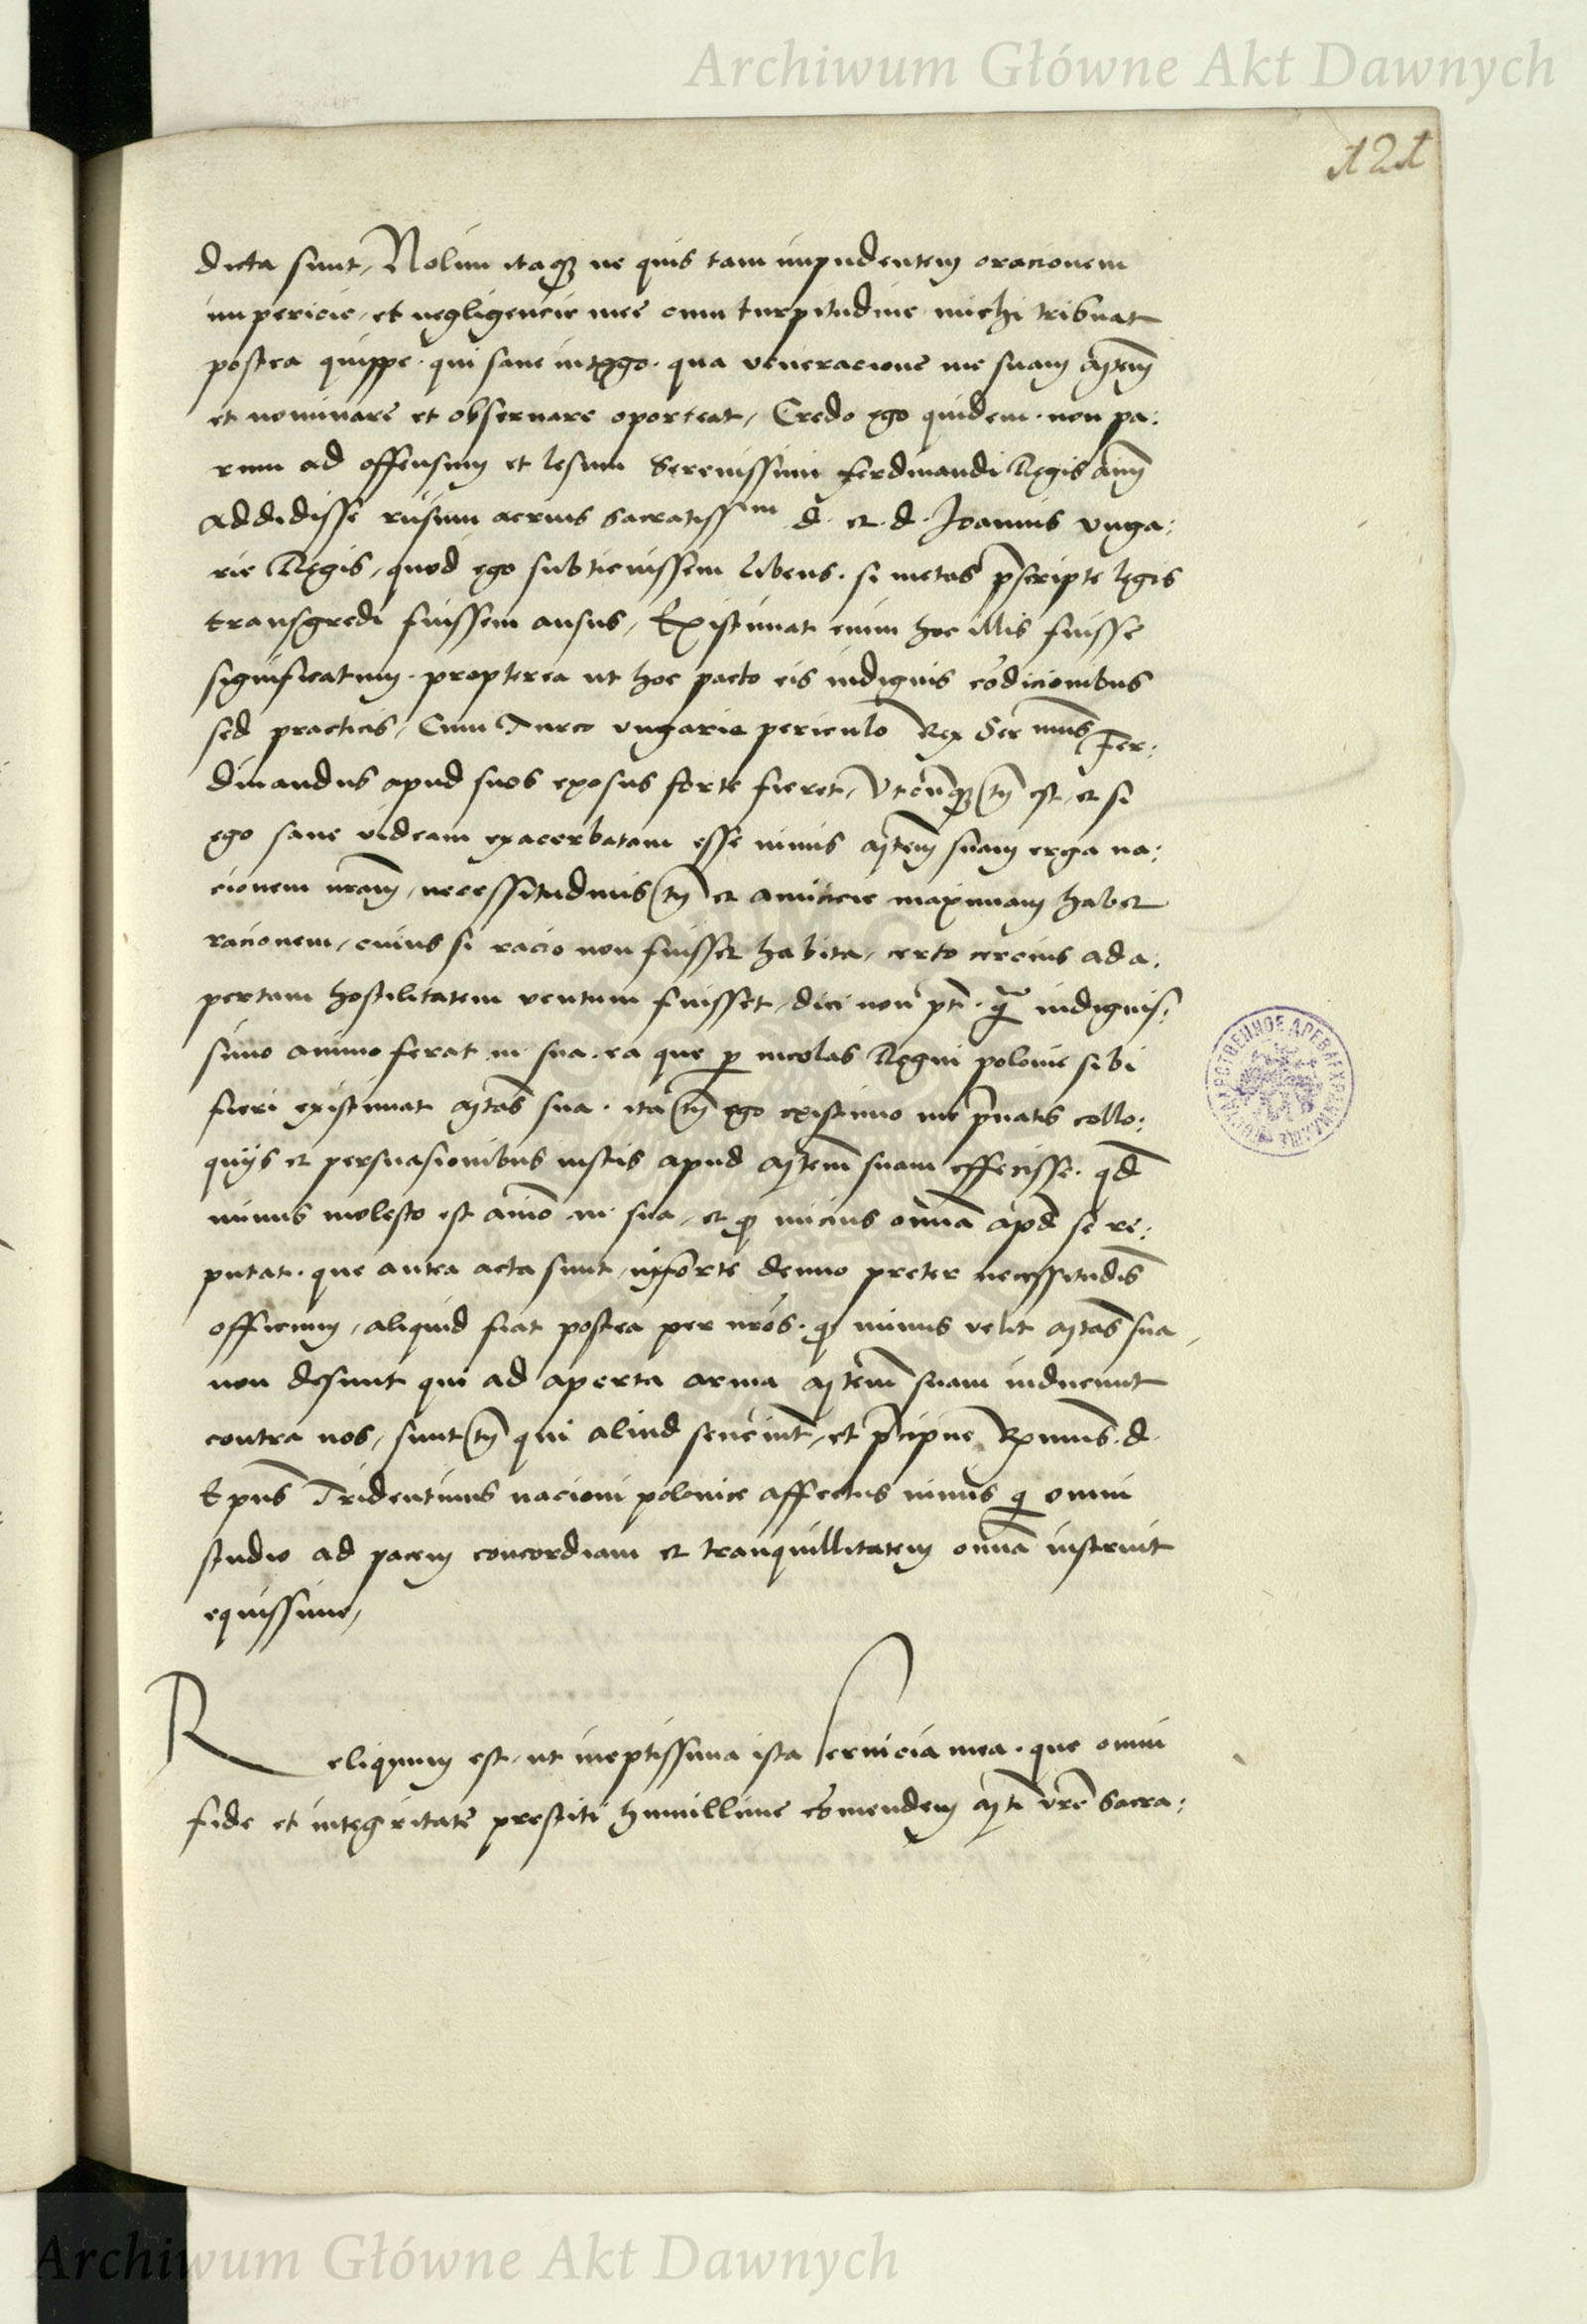 Archiwum Główne Akt Dawnych
121
dicta sunt, Nolim itaq3 ne quis tam impudentem oracionem
impericie, et negligencie mee cum turpitudine michi tribuat
postea quippe. qui sane intego. qua veneracione me suam Mtem̄
et nominare et obseruare oporteat, Credo ego quidem. non pa:
rum ad offensum et lesum Serenissimi Ferdinandi Regis aīm
addidisse rūsum acrius Sacratissm d. et. d. Joannis vnga:
rie Regis, quod ego subticuissem libens. si metas p̄scripte legis
transgredi fuissem ausus, Existimat enim hoc illis fuisse
significatum. propterea ut hoc pacto eis indignis cōdicionibus
sed practicis, Cum Turco vngarie periculo Rex Sermus Fer:
dinandus apud suos exosus forte fieret, Vtcūq3 tn̄ est, et si
ego sane videam exacerbatam esse nimis Mtem̄ suam erga na:
cionem nrām, necessitudinis tn̄ et amicicie maximam habet
racionem, cuius si racio non fuisset habita, certo cercius ad a:
pertam hostilitatem ventum fuisset, dici non pt̄. q̄ indignis:
simo animo ferat m. sua. ea que p incolas Regni polonie sibi
fieri existimat Mtas sua. ita tn̄ ego existimo me p̄uatis collo:
quijs et persuasionibus iustis apud Mtem̄ suam effecisse. qd̄
minus molesto est aīmo m. sua, et q micius omīa apd̄ se re:
putat. que antea acta sunt, ni forte denuo preter necessitudīs
officium, aliquid fiat postea per nrōs. q minus velit Mtas sua
non desunt qui ad aperta arma Mtem̄ suam inducunt
contra nos, sunt tn̄ qui aliud senciūt, et p̄cipue Rx̄mus. d.
Ep̄us Tridentinus nacioni polonice affectus nimis q omni
studio ad pacem concordiam et tranquillitatem omīa instruit
equissime,
Reliquum est, ut ineptissima ista seruicia mea. que omni
fide et integritate prestiti humillime cōmendem Mti vrē Sacra:
Archiwum Główne Akt Dawnych